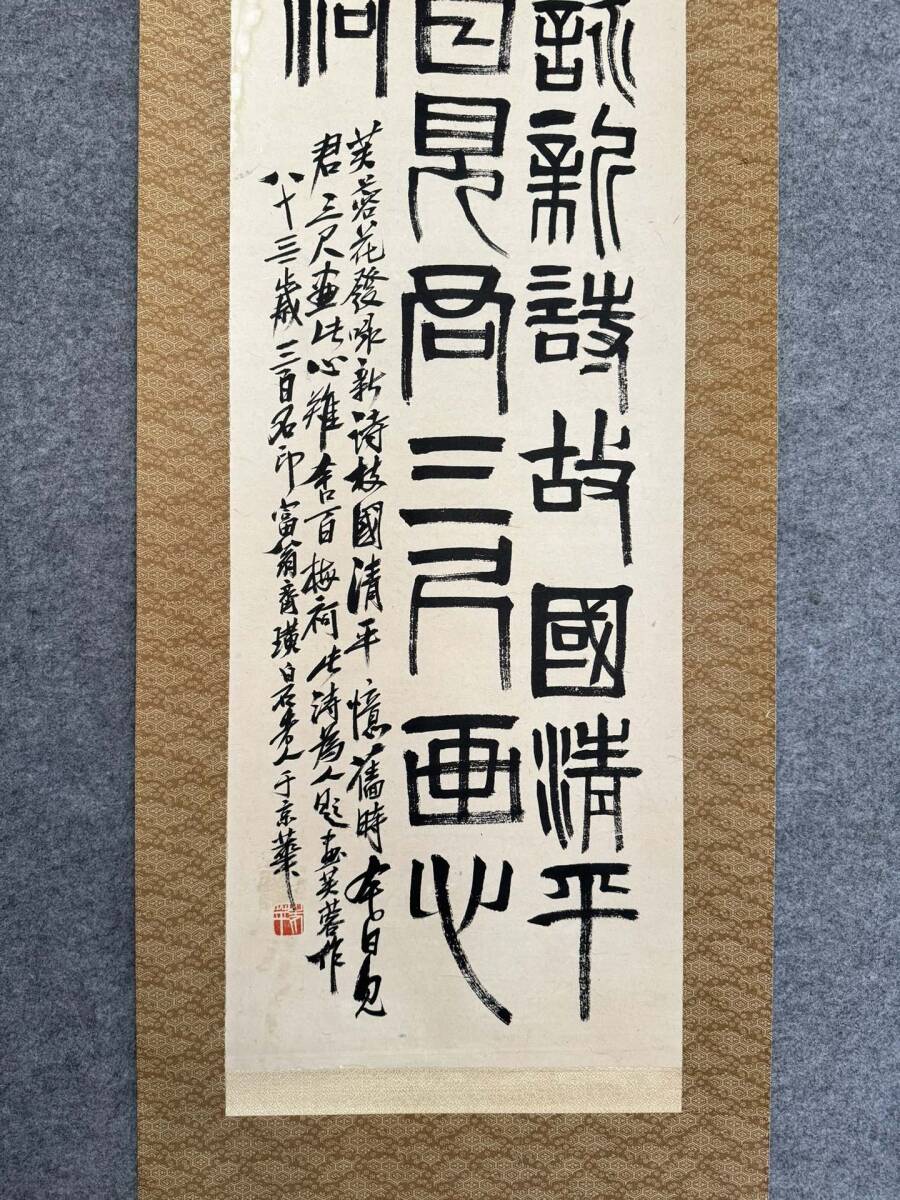 詠新詩故國清平
日見君三尺画心
荷
芙蓉花發咏新詩故國清平憶舊時本日見
君三尺畫此心難舍百梅荷此詩為人題畫芙蓉作
八十三歲三百石印富翁齊璜白石老人于京華